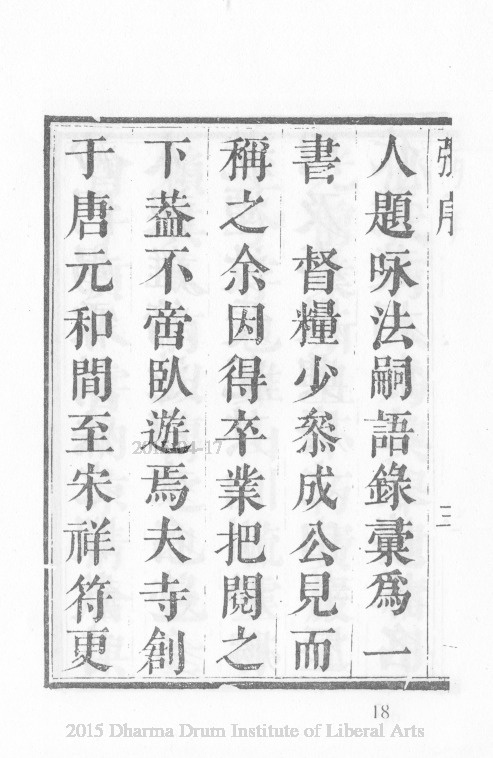 張序
三
人題咏法嗣語錄彚爲一
書　督糧少叅成公見而
稱之余因得卒業把閱之
下葢不啻臥遊焉夫寺創
于唐元和間至宋祥符更
18
2015 Dharma Drum Institute of Liberal Arts